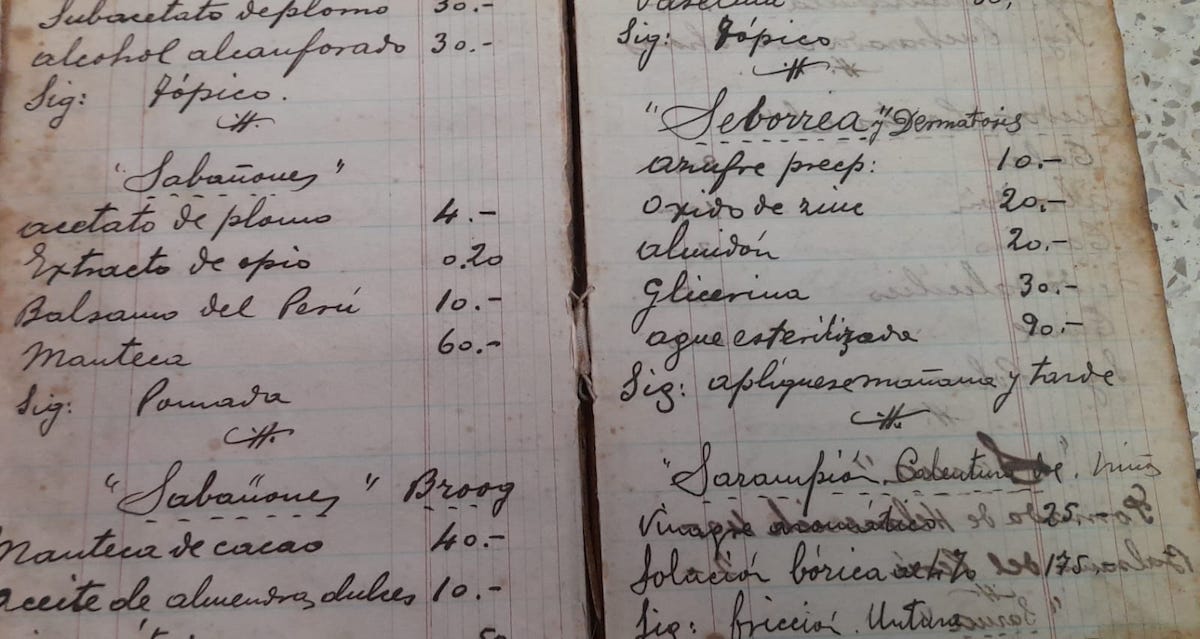 Subacetato de plomo 30.-
alcohol alcanforado 30.-
Sig: Tópico.
"Sabañones"
acetato de plomo 4.-
Extracto de opio 0.20
Balsamo del Perú 10.-
Manteca 60.-
Sig: Pomada
"Sabañones" Broog
Manteca de cacao 40.-
aceite de almendras dulces 10.-
Sig: Tópico
"Seborrea" y Dermatosis
azufre precip: 10.-
Oxido de zinc 20.-
almidón 20.-
Glicerina 30.-
agua esterilizada 90.-
Sig: apliquese mañana y tarde
"Sarampión, Calentura de" niños
Vinagre aromático 25.-
Solación bórica al 4% 175.-
Sig: fricción. Untura